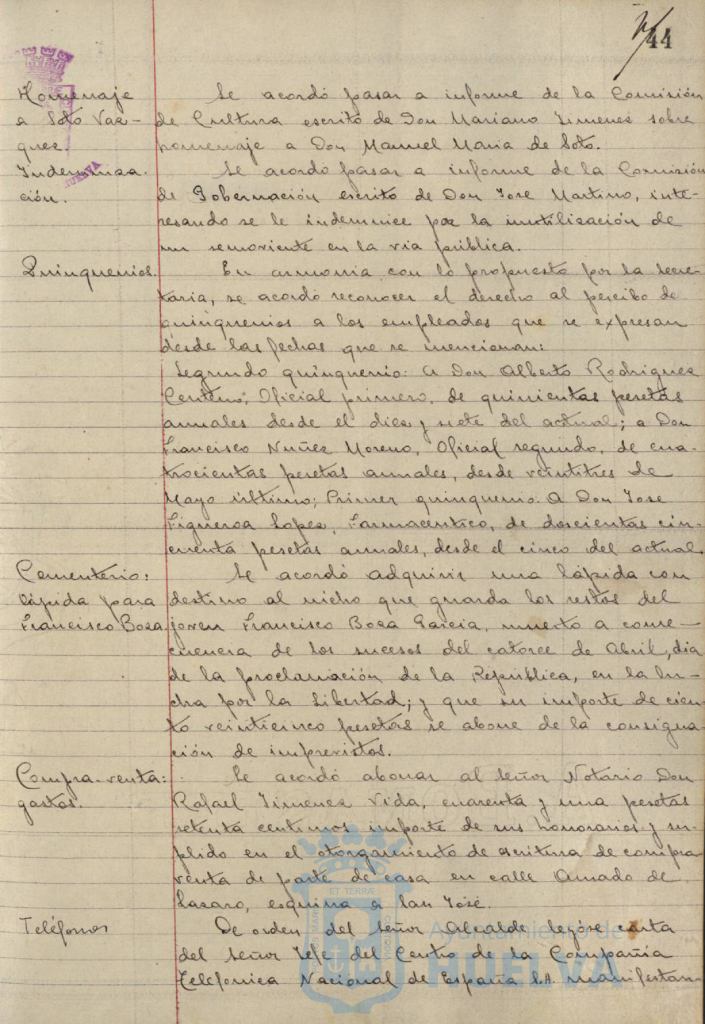 44
Homenaje
a Soto Vas-
quez
Se acordó pasar a informe de la Comisión
de Cultura escrito de Don Mariano Jimenez sobre
homenaje a Don Manuel Maria de Soto.
Indemniza
ción.
Se acordó pasar a informe de la Comisión
de Gobernación escrito de Don Jose Martino, inte-
resando se le indemnice por la inutilización de
un semoviente en la via pública.
Quinquenios.
En armonia con lo propuesto por la Secre-
taria, se acordó reconocer el derecho al percibo de
quinquenios a los empleados que se expresan
desde las fechas que se mencionan:
Segundo quinquenio: A Don Alberto Rodriguez
Centeno, Oficial primero, de quinientas pesetas
anuales desde el diez y siete del actual; a Don
Francisco Nuñez Moreno, Oficial segundo, de cua-
trocientas pesetas anuales, desde veintitres de
Mayo último; Primer quinquenio: A Don Jose
Figueroa Lopez, Farmaceutico, de doscientas cin-
cuenta pesetas anuales, desde el cinco del actual
Cementerio:
lápida para
Francisco Boza.
Se acordó adquirir una lápida con
destino al nicho que guarda los restos del
joven Francisco Boza Garcia, muerto a conse-
cuencia de los sucesos del catorce de Abril, dia
de la proclamación de la República, en la lu-
cha por la libertad; y que su importe de cien-
to veinticinco pesetas se abone de la consigna-
ción de imprevistos.
Compra-venta:
gastos.
Se acordó abonar al Señor Notario Don
Rafael Jimenez Vida, cuarenta y una pesetas
setenta centimos importe de sus honorarios y su-
plido en el otorgamiento de escritura de compra
venta de parte de casa en calle Amado de
Lazaro, esquina a San José.
Teléfonos
De orden del Señor Alcalde leyóse carta
del Señor Jefe del Centro de la Compañia
Telefonica Nacional de España S.A. manifestan-
Ayuntamiento de
HUELVA